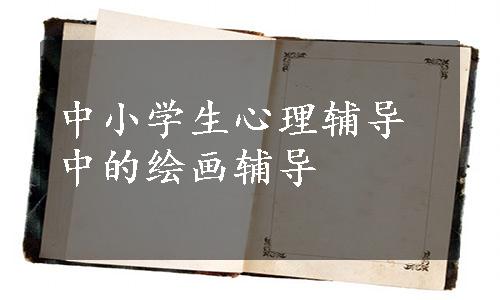 中小学生心理辅导
中的绘画辅导